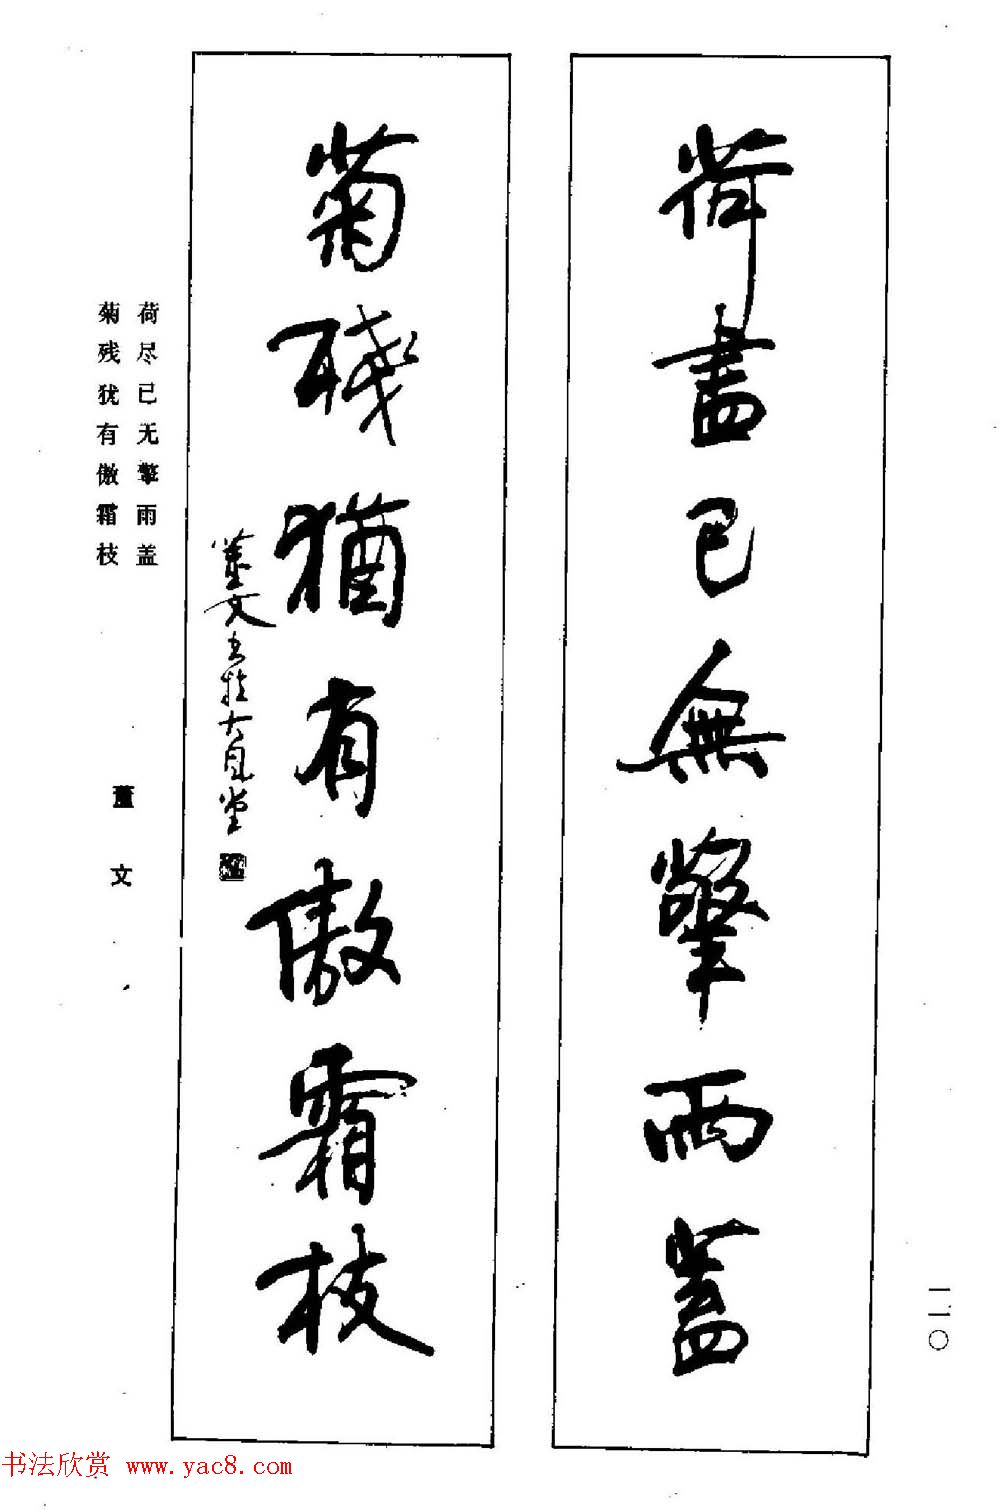 荷盡已無擎雨蓋
菊殘猶有傲霜枝
董文書於大風堂
荷尽已无擎雨盖
菊残犹有傲霜枝
董文
一一〇
书法欣赏 www.yac8.com